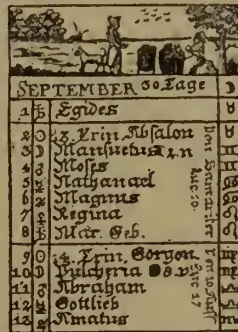 SEPTEMBER 30 Tage
1 Egides
2 Trin. Absalon
3 Mansuetus
4 Moses
5 Nathanael
6 Magnus
7 Regina
8 Mar. Geb.
9 14. Trin. Gorgon
10 Pulcheria
11 Abraham
12 Gottlieb
13 Amatus